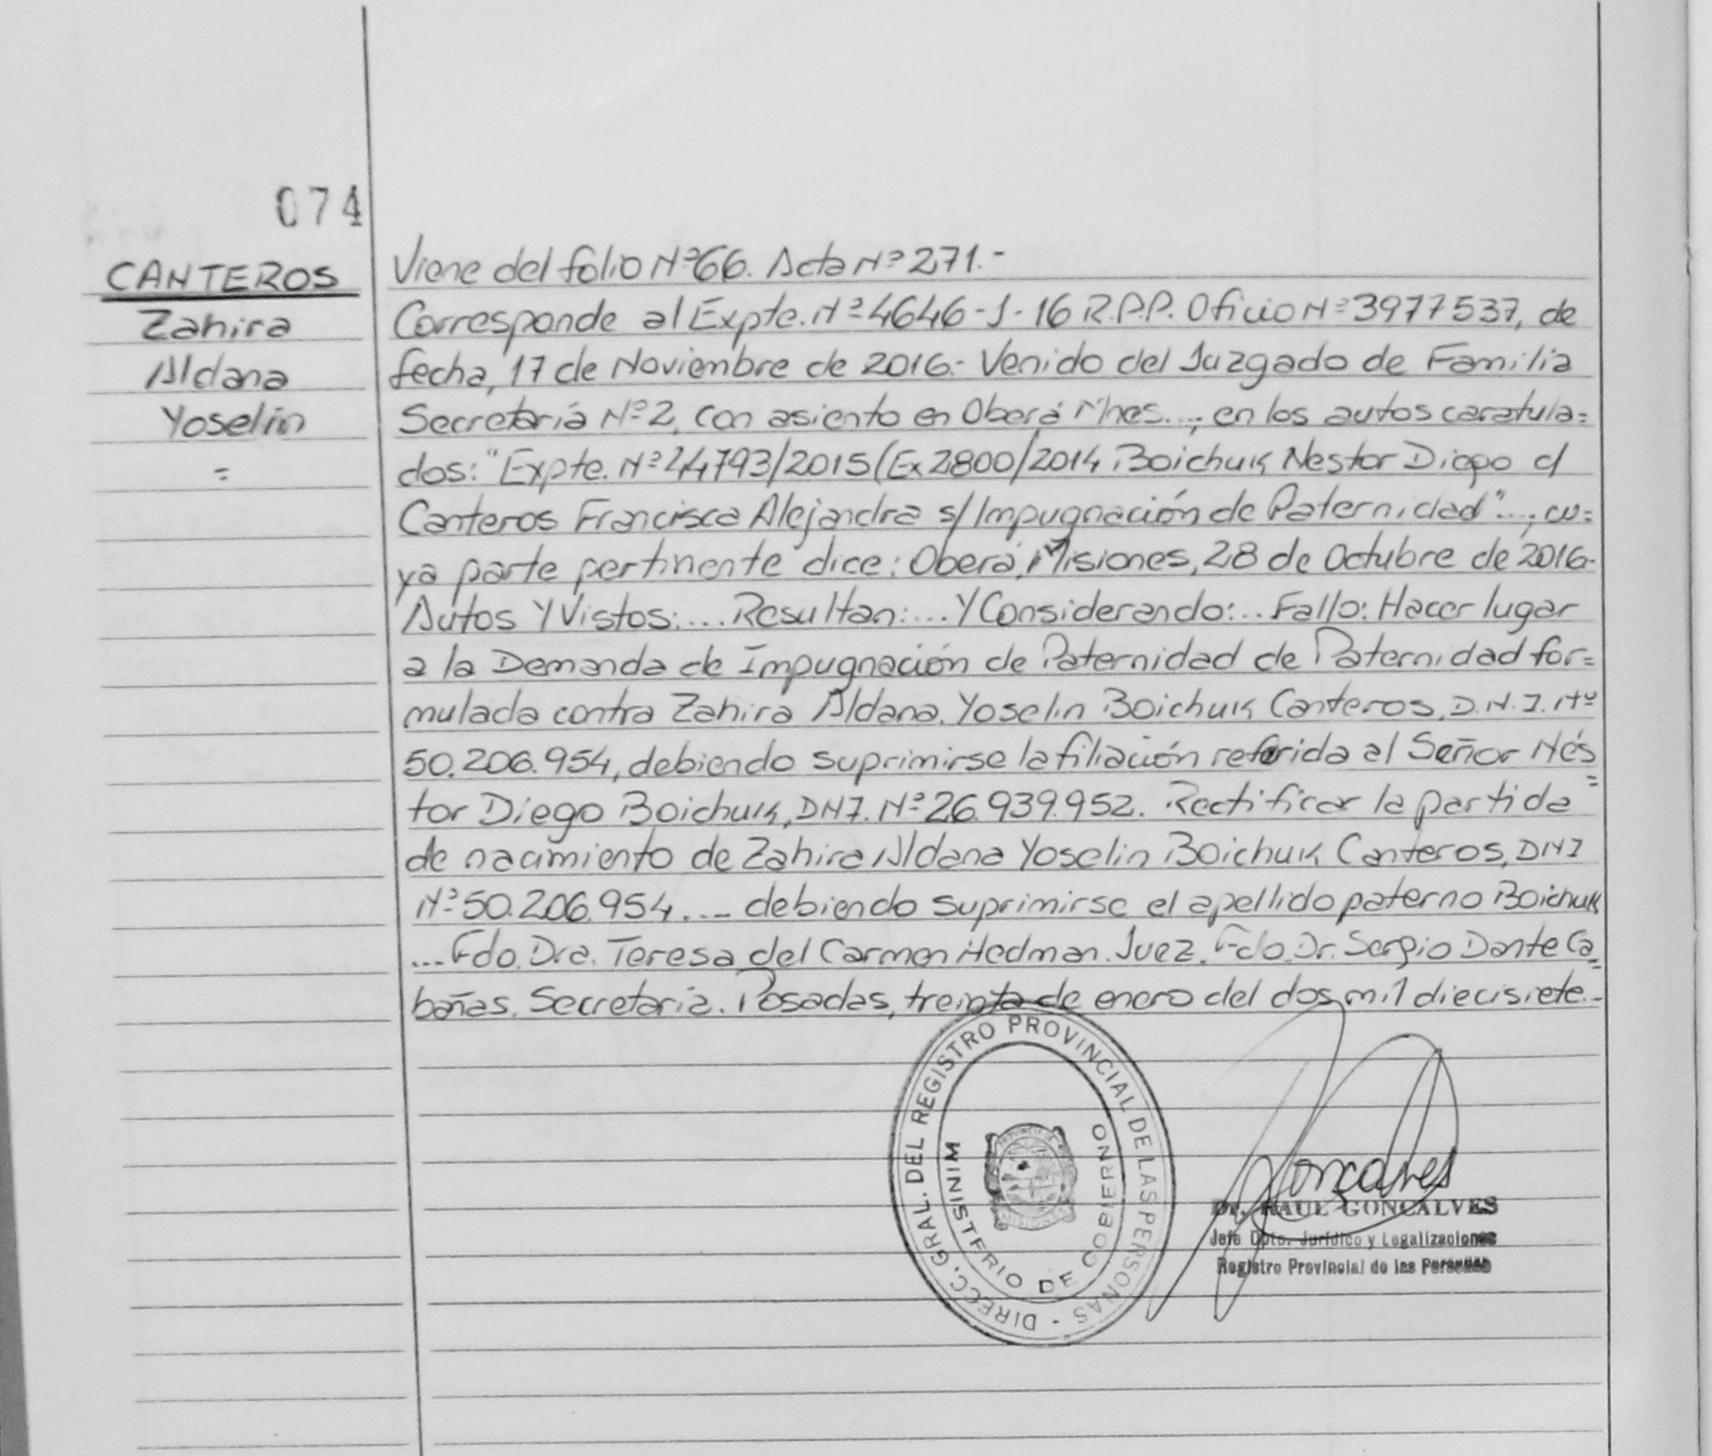 074
CANTEROS
Zahira
Aldana
Yoselin
=
Viene del folio Nº 66. Acta Nº 271.-
Corresponde al Expte. Nº 4646-J-16 R.P.P. Oficio Nº 3977537, de
fecha, 17 de Noviembre de 2016.- Venido del Juzgado de Familia
Secretaría Nº 2, con asiento en Oberá Mnes...; en los autos caratula=
dos: "Expte. Nº 24793/2015 (Ex 2800/2014 Boichuk Nestor Diego c/
Canteros Francisca Alejandra s/ Impugnación de Paternidad"...; cu=
ya parte pertinente dice: Oberá, Misiones, 28 de Octubre de 2016-
Autos Y Vistos:... Resultan:... Y Considerando:... Fallo: Hacer lugar
a la Demanda de Impugnación de Paternidad de Paternidad for=
mulada contra Zahira Aldana Yoselin Boichuk Canteros, D.N.I. Nº
50.206.954, debiendo suprimirse la filiación referida al Señor Nés=
tor Diego Boichuk, DNI. Nº 26.939.952. Rectificar la partida
de nacimiento de Zahira Aldana Yoselin Boichuk Canteros, DNI
Nº 50.206.954.... debiendo suprimirse el apellido paterno Boichuk
... Fdo. Dra. Teresa del Carmen Hedman. Juez. Fdo. Dr. Sergio Dante Ca=
bañas. Secretaria. Posadas, treinta de enero del dos mil diecisiete.-
DIRECC. GRAL. DEL REGISTRO PROVINCIAL DE LAS PERSONAS -
MINISTERIO DE GOBIERNO
PROVINCIA DE
MISIONES
Goncalves
Dr. RAUL GONCALVES
Jefe Dpto. Jurídico y Legalizaciones
Registro Provincial de las Personas